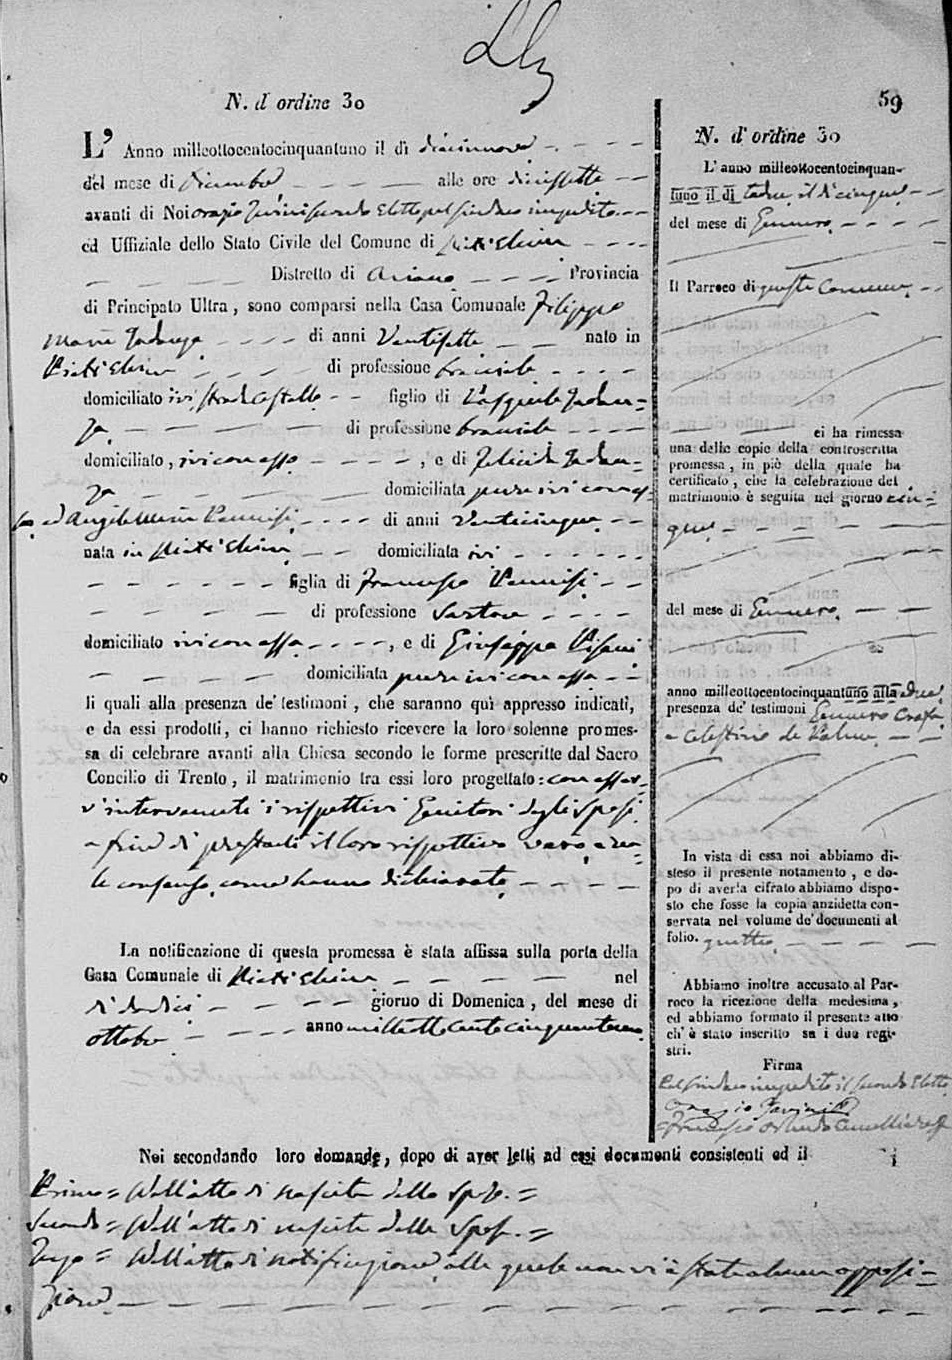 N. d'ordine 30
L' Anno millottocentocinquantuno il dì diecinnove
del mese di Dicembre alle ore diciessette
avanti di Noi Orazio secondo Eletto pel Sindaco impedito
ed Uffiziale dello Stato Civile del Comune di
Distretto di Ariano Provincia
di Principato Ultra, sono comparsi nella Casa Comunale Filippo
Maria di anni Ventisette nato in
di professione bracciale
domiciliato ivi strada Castello figlio di Pasquale
di professione bracciale
domiciliato, ivi con esso, e di Felicia
domiciliata pure ivi con es=
so, ed Angela Maria di anni Venticinque
nata in domiciliata ivi
figlia di Francesco
di professione Sartore
domiciliato ivi con essa, e di Giuseppa Pisani
domiciliata pure ivi con essa
li quali alla presenza de' testimoni, che saranno quì appresso indicati,
e da essi prodotti, ci hanno richiesto ricevere la loro solenne promes-
sa di celebrare avanti alla Chiesa secondo le forme prescritte dal Sacro
Concilio di Trento, il matrimonio tra essi loro progettato: con esser=
v' intervenuti i rispettivi Genitori degli sposi
a fine di prestarli il loro rispettivo
le consenso, come hanno dichiarato
La notificazione di questa promessa è stata affissa sulla porta della
Casa Comunale di nel
dì dodici giorno di Domenica, del mese di
ottobre anno milleottocentocinquantuno
Noi secondando loro domande, dopo di aver letti ad essi documenti consistenti ed il
Primo = Nell'atto di nascita dello sposo. =
Secondo = Nell'atto di nascita della sposa. =
Terzo = Nell'atto di notificazione, alle quale non vi è stata alcuna opposi=
zione
59
N. d'ordine 30
L' anno milleottocentocinquan-
tuno il dì due, il dì cinque
del mese di Gennaro
Il Parroco di questo Comune
ci ha rimessa
una delle copie della controscritta
promessa, in piè della quale ha
certificato, che la celebrazione del
matrimonio è seguita nel giorno cin=
que
del mese di Gennaro
anno milleottocentocinquantuno alla due
presenza de' testimoni Gennaro
e Celestino de Palma
In vista di essa noi abbiamo di-
steso il presente notamento, e do-
po di averla cifrato abbiamo dispo-
sto che fosse la copia anzidetta con-
servata nel volume de' documenti al
folio. quattro
Abbiamo inoltre accusato al Par-
roco la ricezione della medesima,
ed abbiamo formato il presente atto
ch' è stato inscritto su i due regi-
stri.
Firma
Pel Sindaco impedito il secondo Eletto
Orazio
Francesco Cancelliere